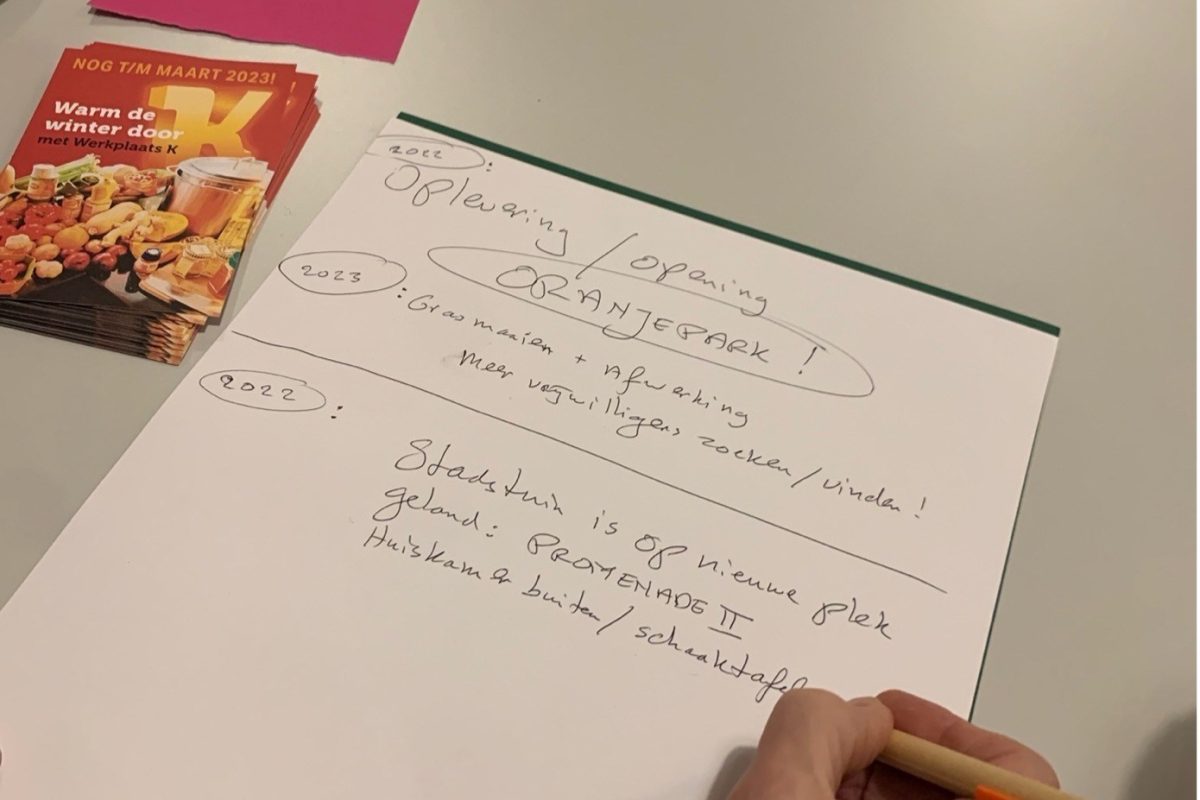 NOG T/M MAART 2023!
K
Warm de
winter door
met Werkplaats K
2022 :
Oplevering / opening
ORANJEPARK !
2023 : Grasmaaien + Afwerking
Meer vrijwilligers zoeken / vinden !
2022 :
Stadstuin is op nieuwe plek
geland : PROMENADE II
Huiskamer buiten / schaaktafel